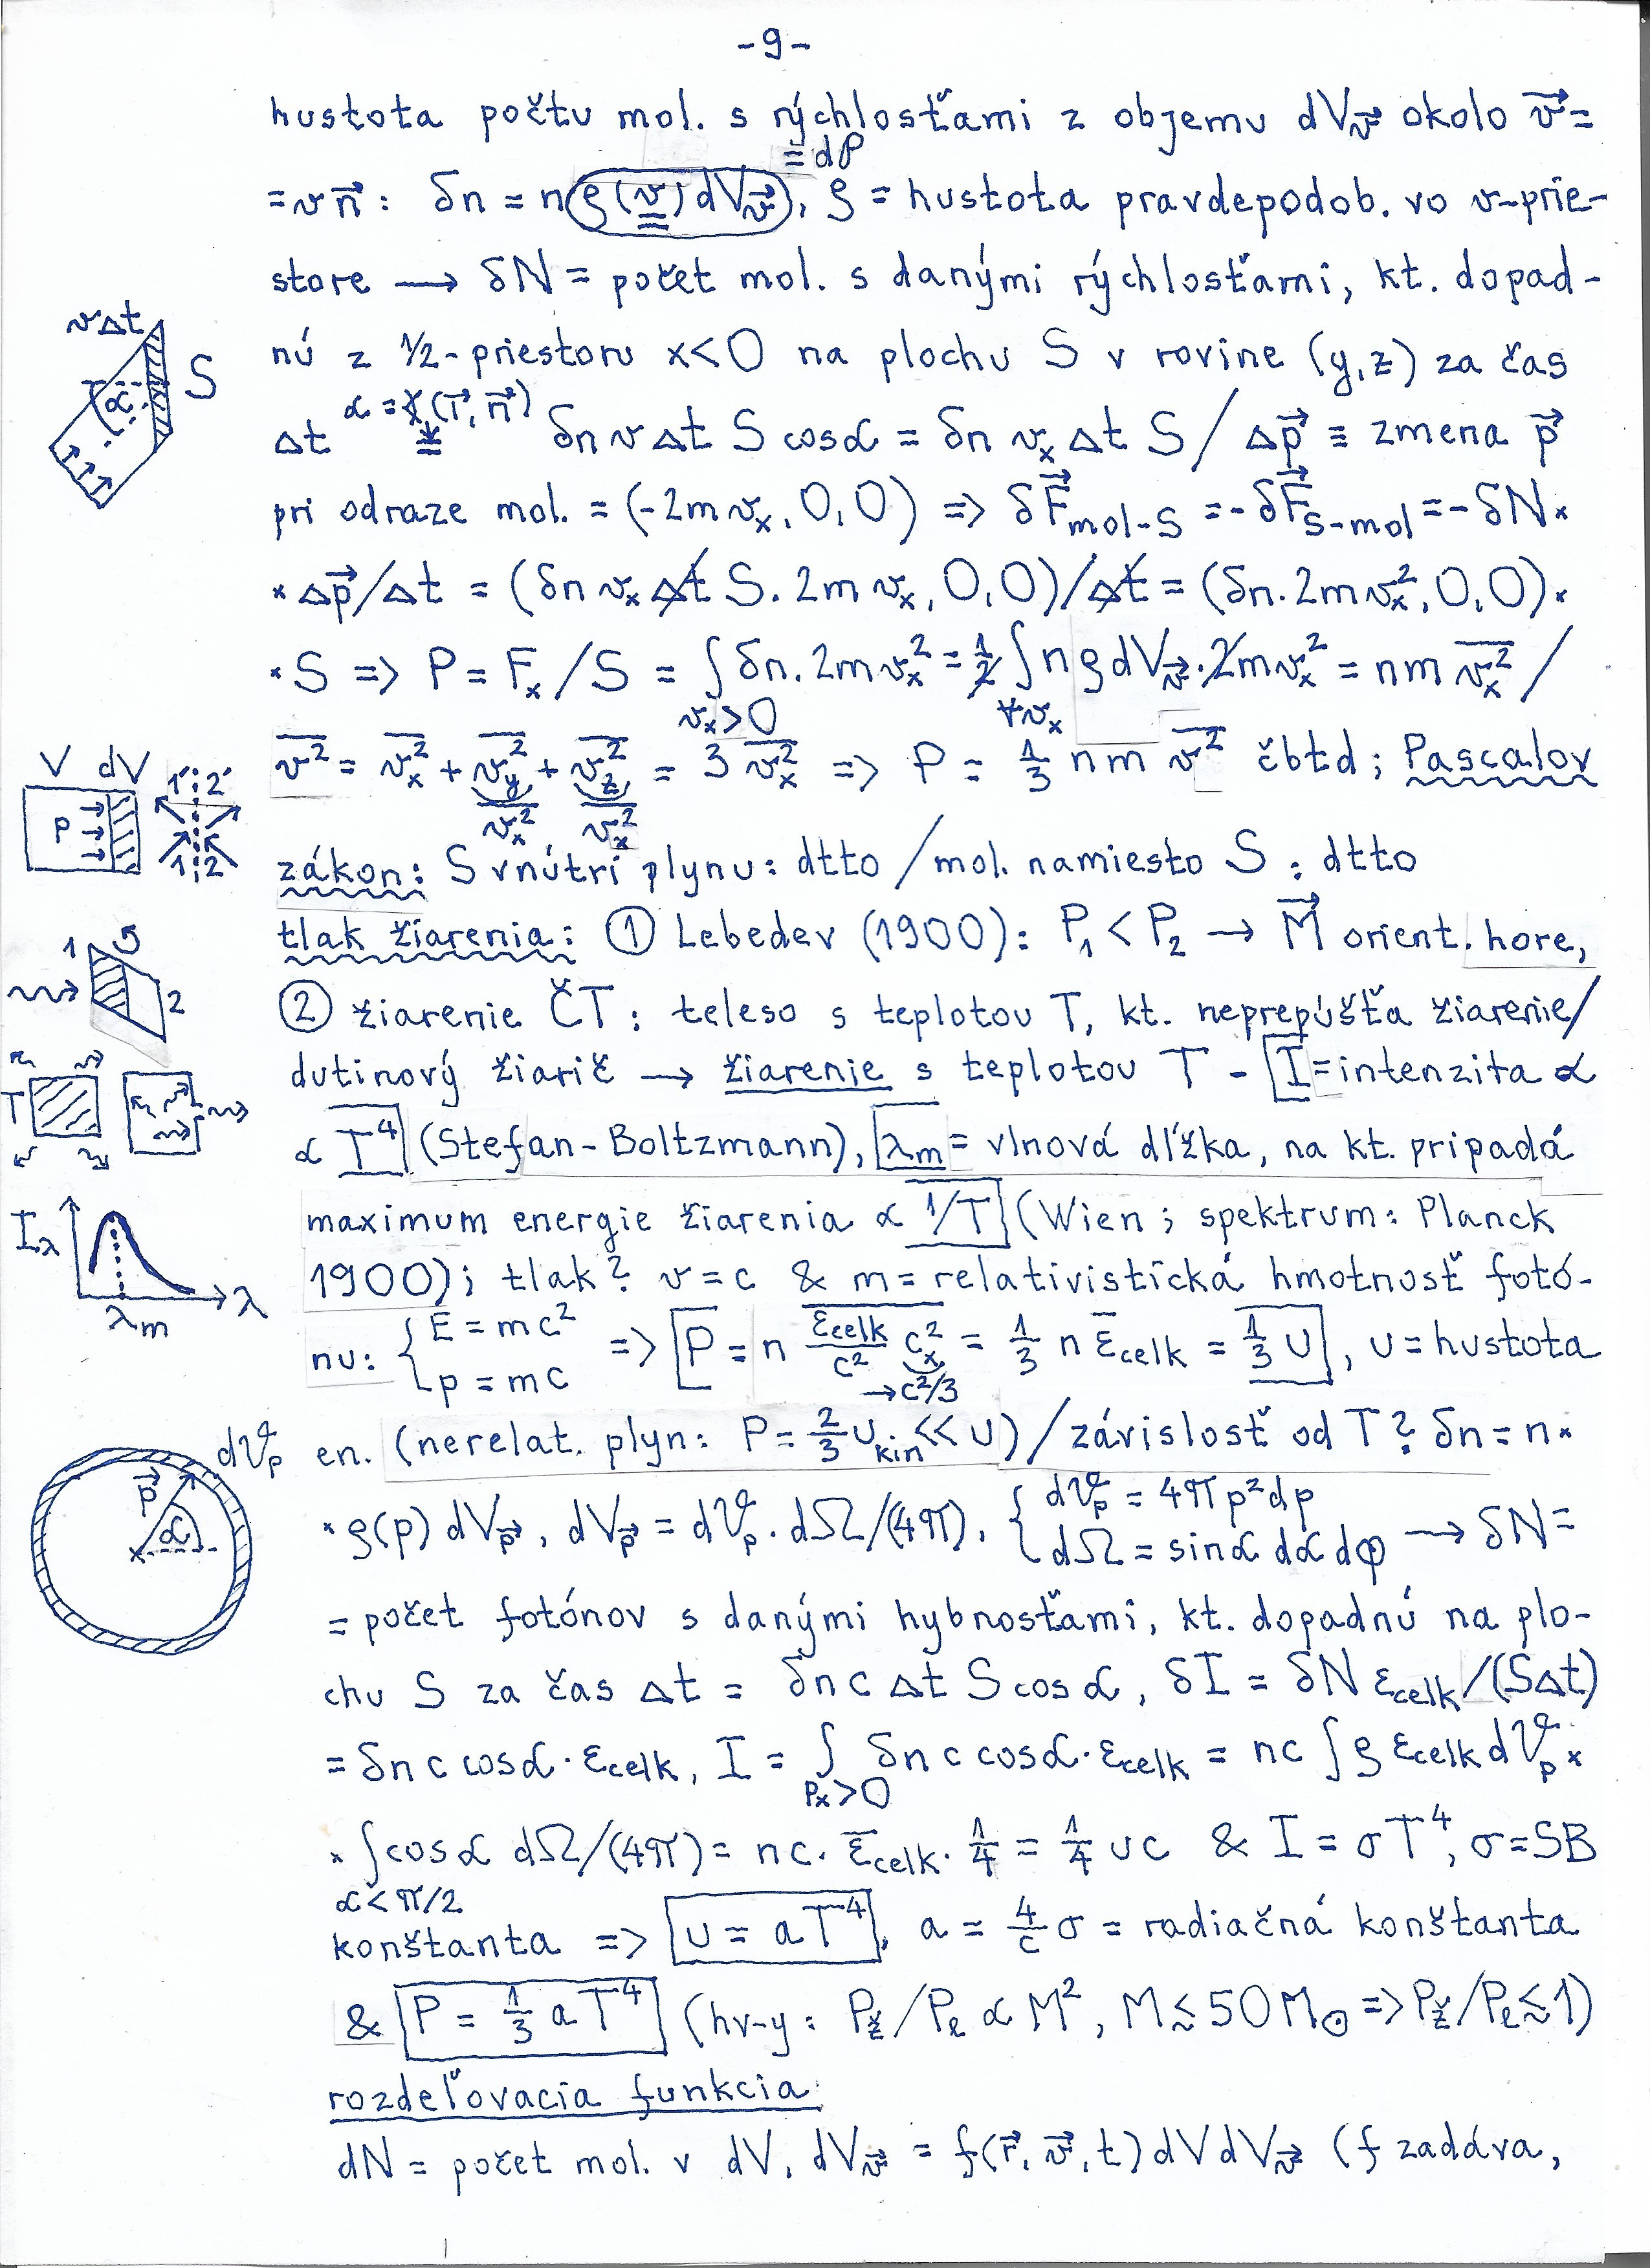 -9-
hustota počtu mol. s rýchlosťami z objemu dV_v⃗ okolo v⃗ =
= v n⃗ : δn = n ρ(v) dV_v⃗, ρ = hustota pravdepodob. vo v-prie-
≡ dP
store → δN = počet mol. s danými rýchlosťami, kt. dopad-
nú z 1/2-priestoru x<0 na plochu S v rovine (y,z) za čas
Δt = δn v Δt S cosα = δn v_x Δt S / Δp⃗ ≡ zmena p⃗
pri odraze mol. = (-2mv_x, 0, 0) => δF⃗_mol-S = -δF⃗_S-mol = -δN ×
× Δp⃗/Δt = (δn v_x Δt S. 2m v_x, 0, 0)/Δt = (δn. 2mv_x², 0, 0) ×
× S => P = F_x/S = ∫_{v_x>0} δn. 2mv_x² = 1/2 ∫_{∀v_x} nρdV_v⃗ . 2mv_x² = nm \overline{v_x²} /
\overline{v²} = \overline{v_x²} + \overline{v_y²} + \overline{v_z²} = 3 \overline{v_x²} => P = 1/3 nm \overline{v²} čbtd ; Pascalov
\overline{v_x²} \overline{v_x²}
zákon: S vnútri plynu: dtto / mol. namiesto S : dtto
tlak žiarenia: ① Lebedev (1900): P₁ < P₂ → M⃗ orient. hore,
② žiarenie ČT : teleso s teplotou T, kt. neprepúšťa žiarenie/
dutinový žiarič → žiarenie s teplotou T - I = intenzita ∝
∝ T⁴ (Stefan-Boltzmann), λ_m = vlnová dĺžka, na kt. pripadá
maximum energie žiarenia ∝ 1/T (Wien ; spektrum: Planck
1900) ; tlak? v = c & m = relativistická hmotnosť fotó-
nu: { E = mc² p = mc => P = n \overline{ε_celk/c² c_x²} = 1/3 n ε̄_celk = 1/3 u, u = hustota
→ c²/3
en. (nerelat. plyn: P = 2/3 u_kin << u) / závislosť od T? δn = n ×
× ρ(p) dV_p⃗, dV_p⃗ = d𝒱_p . dΩ/(4π), { d𝒱_p = 4πp²dp dΩ = sinα dα dφ → δN =
= počet fotónov s danými hybnosťami, kt. dopadnú na plo-
chu S za čas Δt = δn c Δt S cosα, δI = δN ε_celk/(SΔt)
= δn c cosα . ε_celk, I = ∫_{p_x>0} δn c cosα . ε_celk = nc ∫ ρ ε_celk d𝒱_p ×
× ∫_{α<π/2} cosα dΩ/(4π) = nc . ε̄_celk . 1/4 = 1/4 uc & I = σT⁴, σ = SB
konštanta => u = aT⁴, a = 4/c σ = radiačná konštanta
& P = 1/3 aT⁴ (hv-y : P_ž/P_l ∝ M², M ≲ 50 M_⊙ => P_ž/P_l ≲ 1)
rozdeľovacia funkcia:
dN = počet mol. v dV, dV_v⃗ = f(r⃗, v⃗, t) dV dV_v⃗ (f zadáva,
vΔt
S
α
α = ∢(i⃗, n⃗)
V dV
P
1' 2'
1 2
1
2
T
I_λ
λ
λ_m
d𝒱_p
p⃗
α